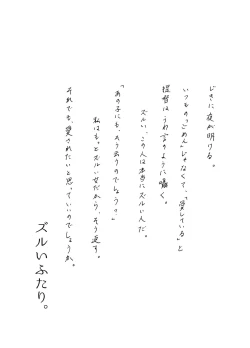 じきに夜が明ける。
いつもの「ごめん」じゃなくて、「愛している」と
提督はうわ言のように囁く。
ズルい、この人は本当にズルい人だ。
「あの子にも、そう言うのでしょう?」
私はもっとズルい女だから、そう返す。
それでも、愛されたいと思っていいのでしょうか。
ズルいふたり。